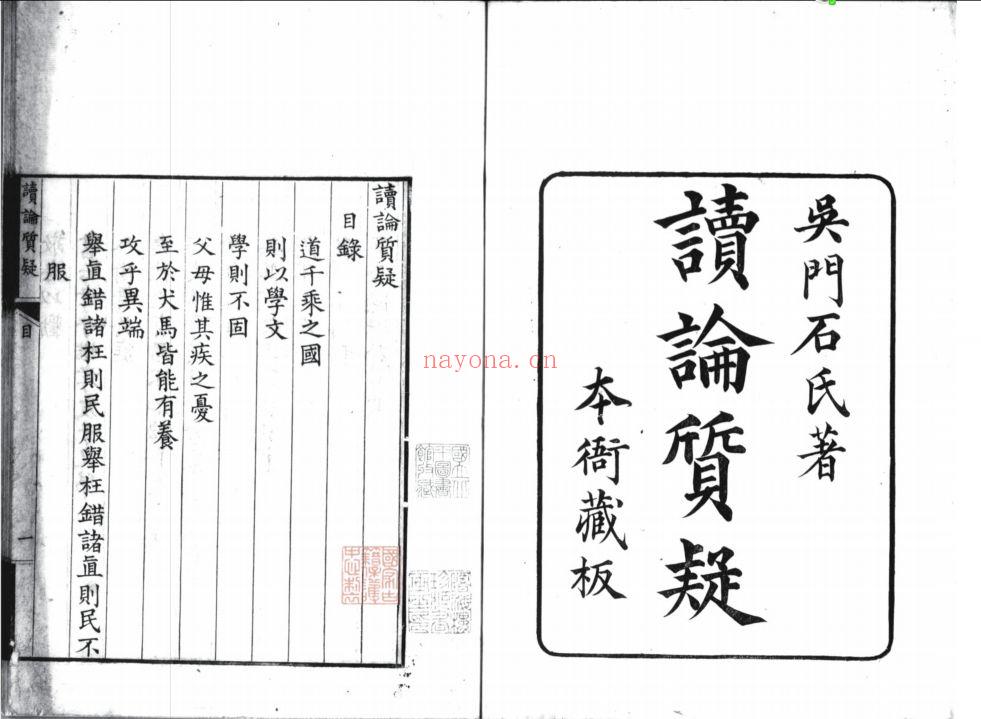 吳門石氏著
讀論質疑
本衙藏板
讀論質疑
目錄
道千乘之國
則以學文
學則不固
父母惟其疾之憂
至於犬馬皆能有養
攻乎異端
舉直錯諸枉則民服舉枉錯諸直則民不
服
讀論質疑
目
一
nayona.cn